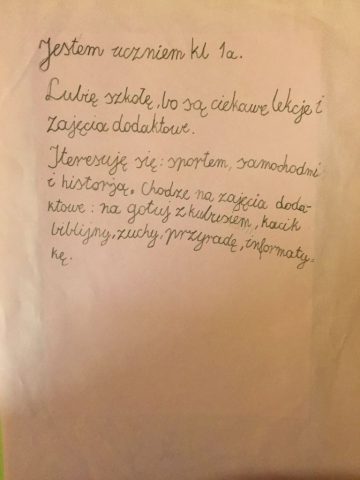 Jestem uczniem kl 1a.
Lubię szkołę, bo są ciekawe lekcje i
zajęcia dodaktowe.
Iteresuję się: sportem, samochodni
i historją. Chodze na zajęcia doda-
ktowe: na gotuj z kubusiem, kacik
biblijny, zuchy, przyrodę, informaty-
kę.